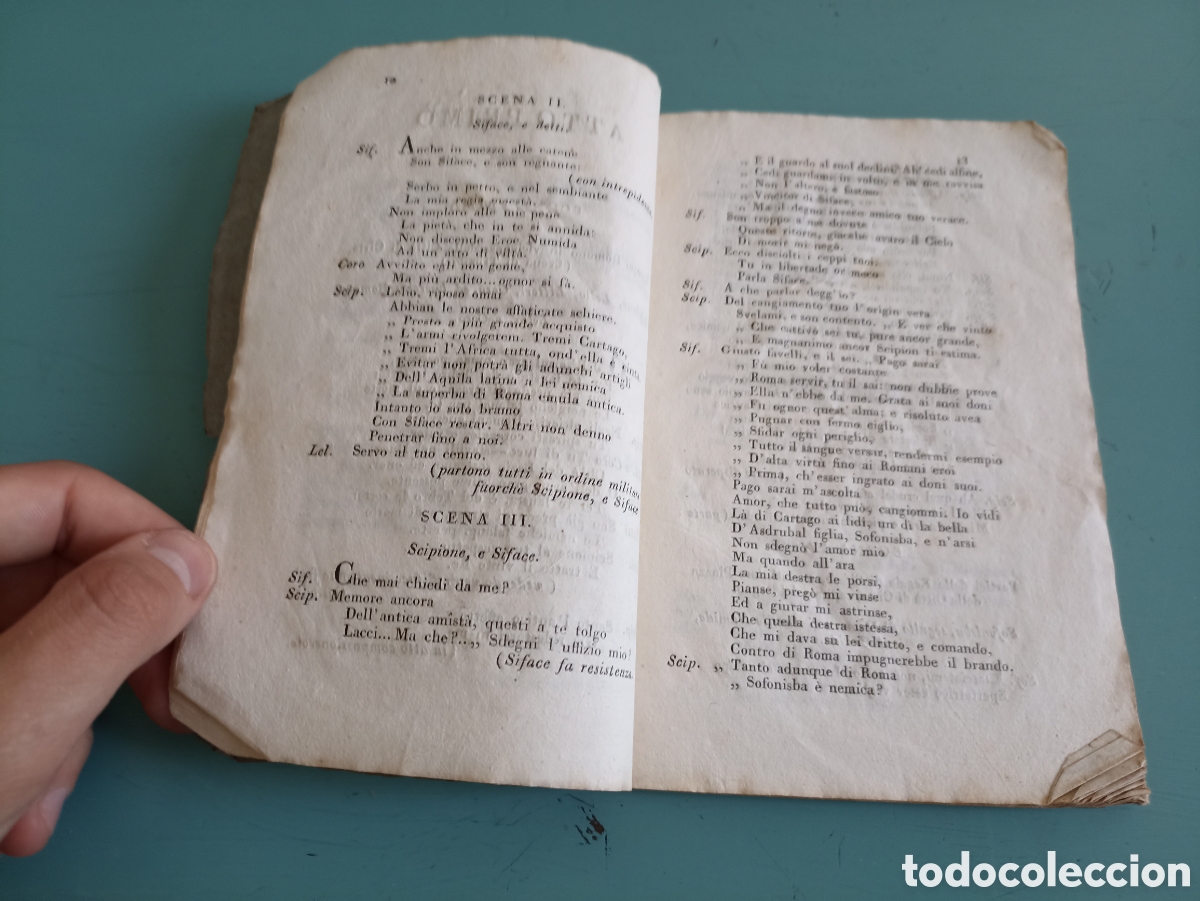 12
SCENA II.
Siface, e detti.
Sif. Anche in mezzo alle catene
Son Siface, e son regnante:
(con intrepidezza
Serbo in petto, e nel sembiante
La mia regia maestà.
Non imploro alle mie pene
La pietà, che in te si annida:
Non discende Eroe Numida
Ad un'atto di viltà.
Coro Avvilito egli non geme,
Ma più ardito... ognor si fa.
Scip. Lelio, riposo omai
Abbian le nostre affaticate schiere.
„ Presto a più grande acquisto
„ L'armi rivolgerem. Tremi Cartago,
„ Tremi l'Africa tutta, ond'ella è cinta
„ Evitar non potrà gli adunchi artigli
„ Dell'Aquila latina a lei nemica
„ La superba di Roma emula antica.
Intanto io solo bramo
Con Siface restar. Altri non denno
Penetrar fino a noi.
Lel. Servo al tuo cenno.
(partono tutti in ordine militare
fuorchè Scipione, e Siface
SCENA III.
Scipione, e Siface.
Sif. Che mai chiedi da me?
Scip. Memore ancora
Dell'antica amistà, questi a te tolgo
Lacci... Ma che?...„ Sdegni l'uffizio mio?
(Siface fa resistenza
13
„ E il guardo al suol declini? Ah! cedi alfine,
„ Cedi guardami in volto, e in me ravvisa
„ Non l'altero, e fastoso
„ Vincitor di Siface,
„ Ma il degno invece amico tuo verace.
Sif. Son troppo a me dovute
Queste ritorte, giacchè avaro il Cielo
Di morir mi negò.
Scip. Ecco disciolti i ceppi tuoi.
Tu in libertade or meco
Parla Siface.
Sif. A che parlar degg'io?
Scip. Del cangiamento tuo l'origin vera
Svelami, e son contento. „ E ver che vinto
„ Che cattivo sei tu, pure ancor grande,
„ E magnanimo ancor Scipion ti estima.
Sif. Giusto favelli, e il sei... Pago sarai
„ Fu mio voler costante
„ Roma servir, tu il sai: non dubbie prove
„ Ella n'ebbe da me. Grata ai suoi doni
„ Fu ognor quest'alma; e risoluto avea
„ Pugnar con fermo ciglio,
„ Sfidar ogni periglio,
„ Tutto il sangue versar, rendermi esempio
„ D'alta virtù fino ai Romani eroi
„ Prima, ch'esser ingrato ai doni suoi.
Pago sarai m'ascolta
Amor, che tutto può, cangiommi. Io vidi
Là di Cartago ai lidi, un dì la bella
D'Asdrubal figlia, Sofonisba, e n'arsi
Non sdegnò l'amor mio
Ma quando all'ara
La mia destra le porsi,
Pianse, pregò mi vinse
Ed a giurar mi astrinse,
Che quella destra istessa,
Che mi dava su lei dritto, e comando,
Contro di Roma impugnerebbe il brando.
Scip. „ Tanto adunque di Roma
„ Sofonisba è nemica?
todocoleccion